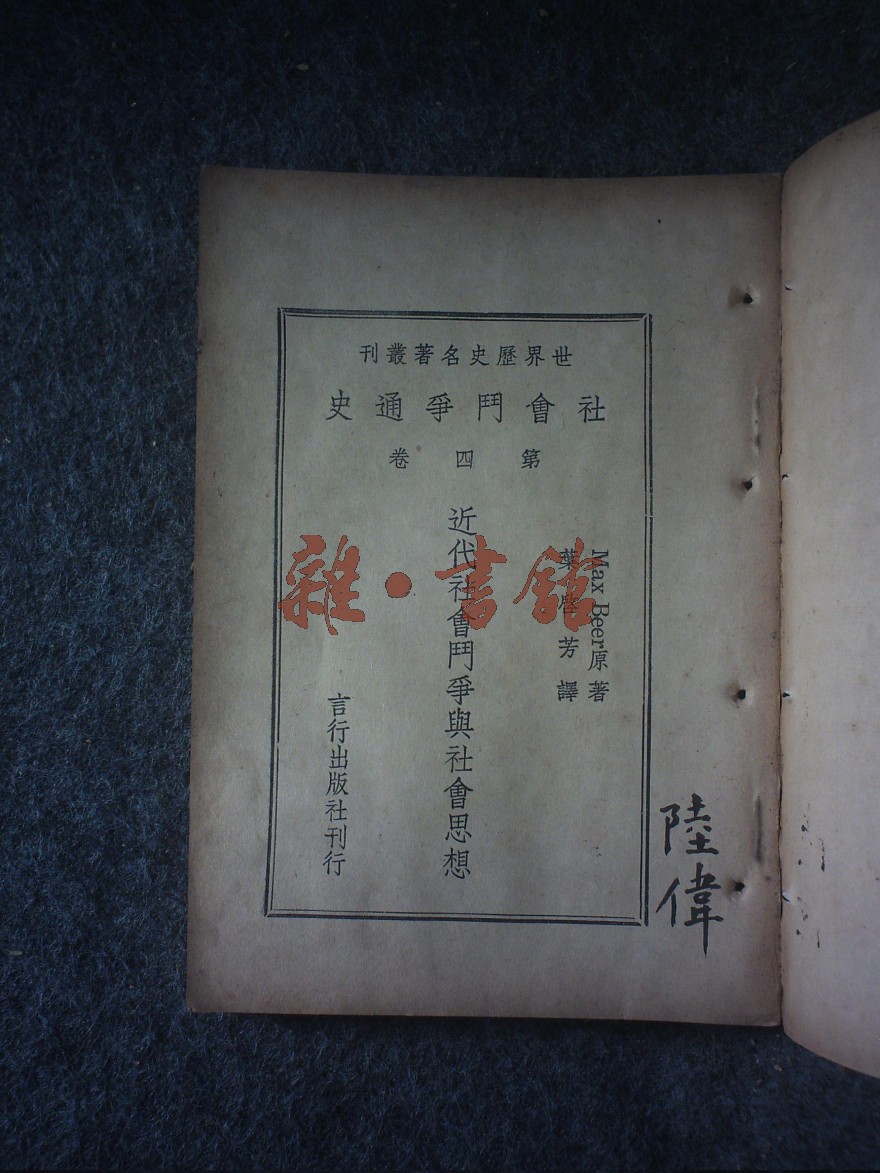 世界歷史名著叢刊
社會鬥爭通史
第四卷
Max Beer原著
葉啓芳譯
近代社會鬥爭與社會思想
言行出版社刊行
陸偉
雜·書館